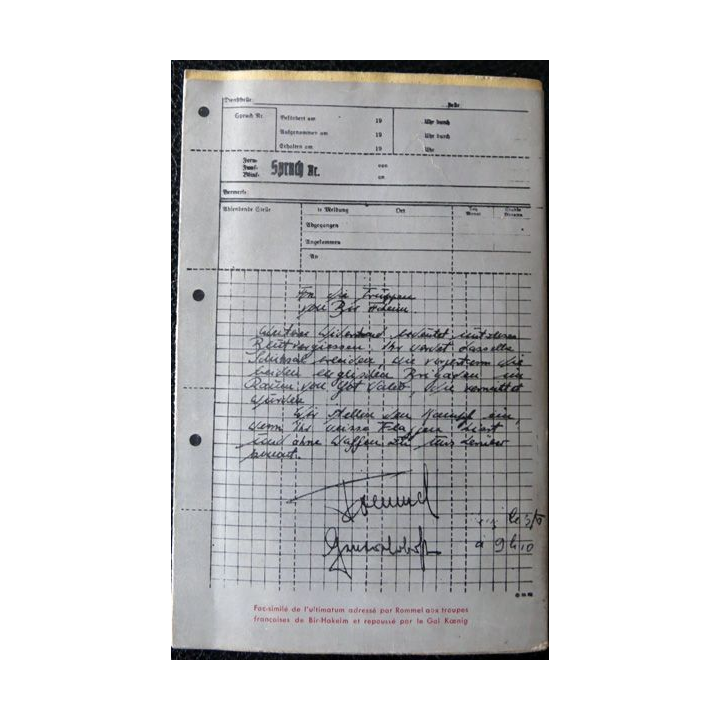 Dienststelle
Stelle
Spruch Nr.
Befördert am 19 Uhr durch
Aufgenommen am 19 Uhr durch
Erhalten am 19 Uhr
Fern-
Funk-
Blink-
Spruch Nr.
von
an
Vermerk:
Absendende Stelle
te Meldung Ort
Abgegangen
Angekommen
An
An die Truppen
von Bir Hacheim
Weiterer Widerstand bedeutet nutzloses
Blutvergiessen. Ihr werdet dasselbe
Schicksal erleiden, wie vorgestern die
beiden englischen Brigaden im
Raum von Got Valeb, die vernichtet
wurden
Wir stellen den Kampf ein,
wenn Ihr weisse Flaggen zeigt
und ohne Waffen zu uns herüber
kommt.
Rommel
Generaloberst
le 3/6
à 9h10
Fac-similé de l'ultimatum adressé par Rommel aux troupes
françaises de Bir-Hakeim et repoussé par le Gal Kœnig